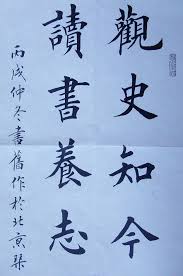 觀史知今
讀書養志
丙戌仲冬書舊作於北京琹